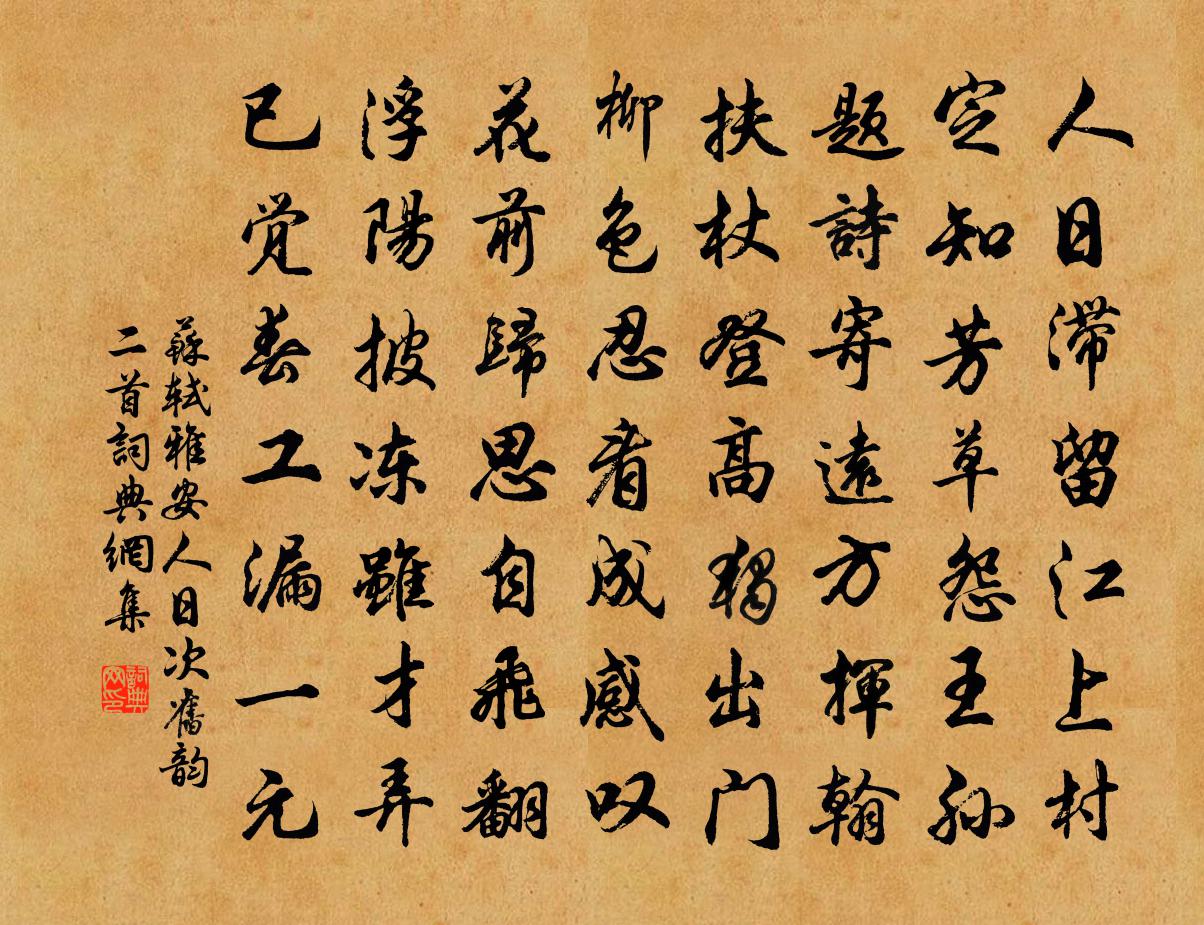 人日滞留江上村
定知芳草怨王孙
题詩寄遠方揮翰
扶杖登高独出门
柳色忍看成感叹
花前歸思自飛翻
浮陽披冻雖才弄
已觉春工漏一元
蘇軾雅安人日次舊韵
二首詞典網集
詞典網印